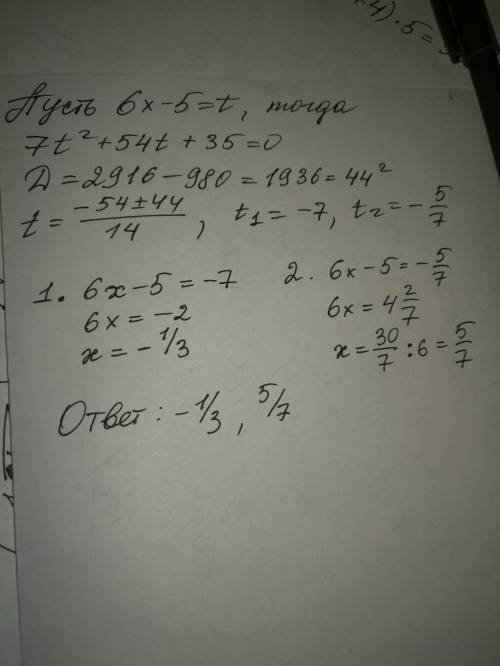 +4)·5=
Пусть 6x-5=t, тогда
7t²+54t+35=0
Д=2916-980=1936=44²
t=(-54±44)/14, t₁=-7, t₂=-5/7
1. 6x-5=-7
6x=-2
x=-1/3
2. 6x-5=-5/7
6x=4 2/7
x=30/7:6=5/7
Ответ: -1/3, 5/7